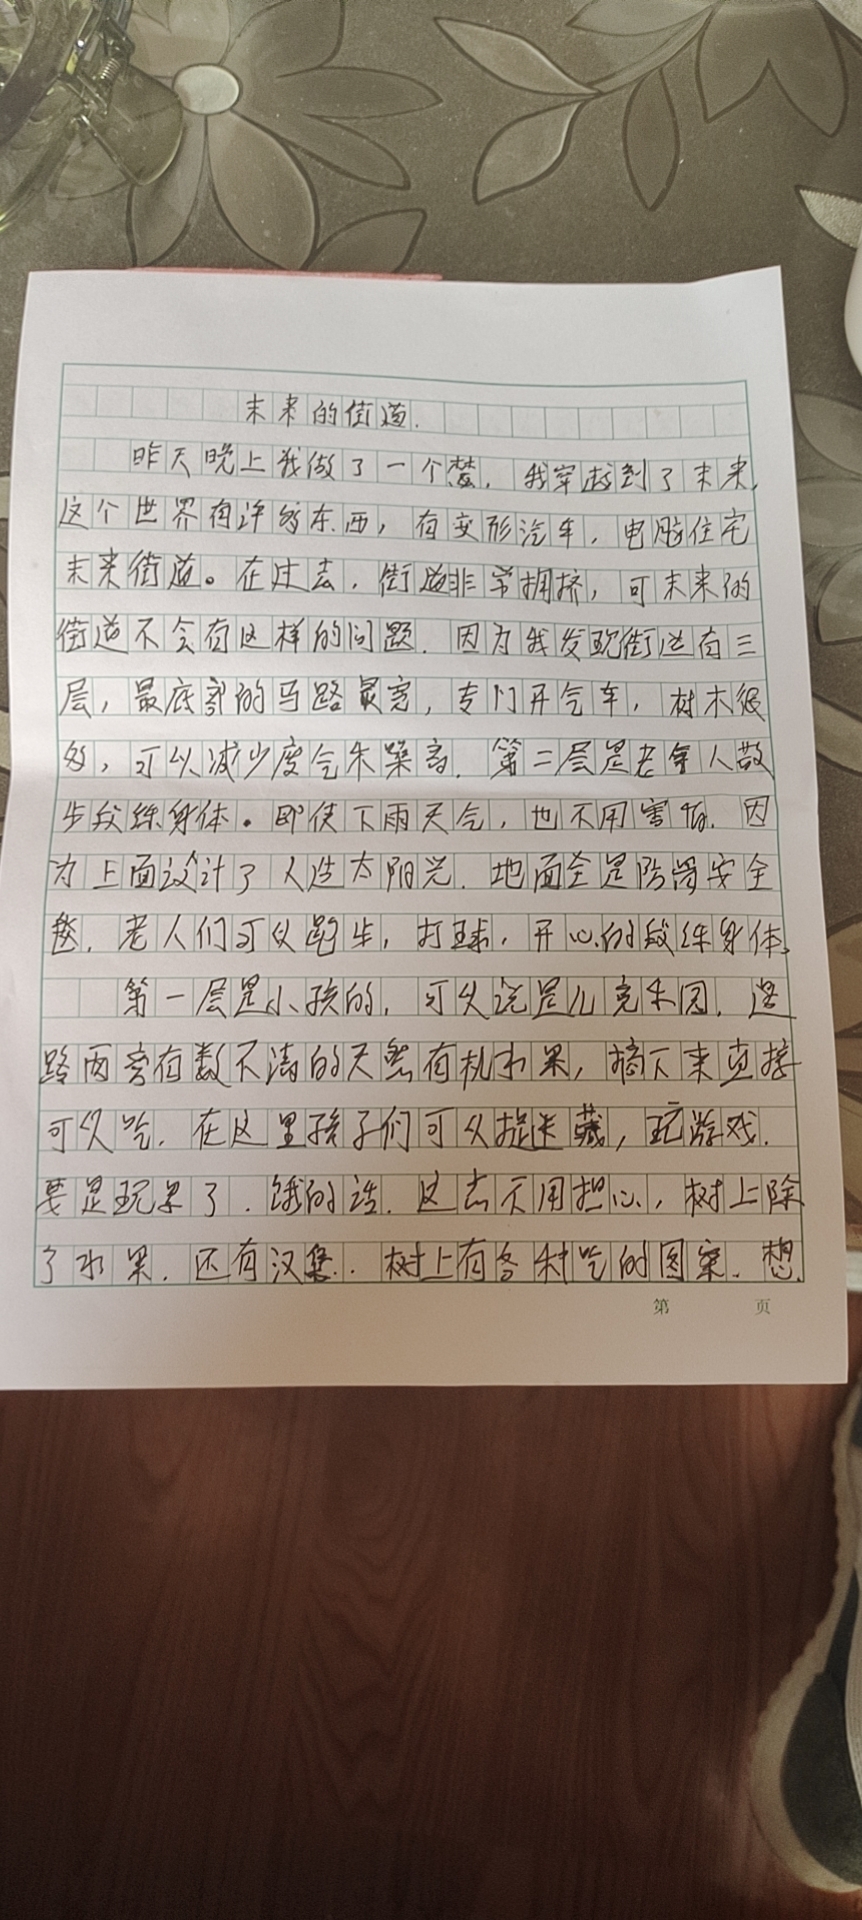 未来的街道.
昨天晚上我做了一个梦，我穿越到了未来，
这个世界有许多东西，有变形汽车，电脑住宅
未来街道。在过去，街道非常拥挤，可未来的
街道不会有这样的问题.因为我发现街道有三
层，最底部的马路最宽，专门开气车，树木很
多，可以减少度气和噪音.第二层是老年人散
步段练身体。即使下雨天气，也不用害怕.因
为上面设计了人造太阳光.地面全是防滑安全
毯.老人们可以跑步，打球，开心的段练身体，
第一层是小孩的，可以说是儿童乐园.道
路两旁有数不清的天然有机水果，摘下来直接
可以吃.在这里孩子们可以捉迷藏，玩游戏.
要是玩累了.饿的话.这点不用担心，树上除
了水果.还有汉堡.树上有各种吃的图案.想.
第 页